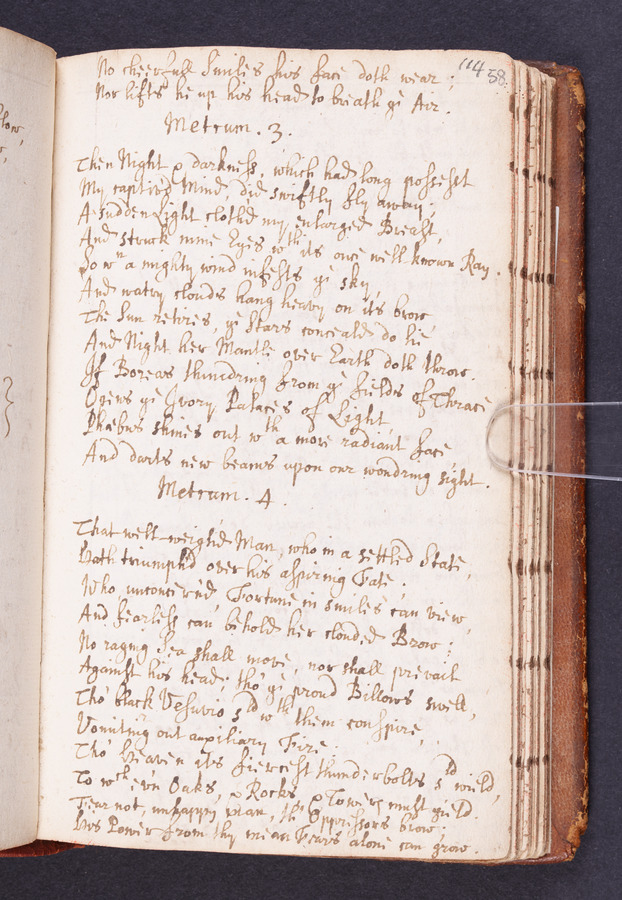 114 58.
No cheerfull Smiles his face doth wear ;
Nor lifts he up his head to breath ye Air .
Metrum . 3 .
Then Night & darkness, which had long possesst
My captiv'd Mind, did swiftly fly away ;
A sudden Light cloth'd my enlarged Breast,
And struck mine Eyes wth its once well known Ray .
So wn a mighty wind infests ye sky,
And watry clouds hang heavy on its brow
The Sun retires, ye Stars conceal'd do lie
And Night her Mantle over Earth doth throw .
If Boreas thundring from ye fields of Thrace
Opens ye Ivory Palaces of Light,
Phœbus shines out wth a more radiant face,
And darts new beams upon our wondring sight .
Metrum . 4 .
That well-weigh'd Man, who in a settled State,
Hath triumph'd over his aspiring Fate .
Who unconcern'd, Fortune in smiles can view,
And fearless can behold her clouded Brow ;
No raging Sea shall move, nor shall prevail
Against his head ; tho' ye proud Billows swell,
Tho' black Vesuvio sd wth them conspire,
Vomiting out auxiliary Fire .
Tho' Heaven its fiercest thunderbolts sd wield,
To wch ev'n Oaks, & Rocks & Towers must yield .
Fear not, unhappy man, th' Oppressors brow :
His Power from thy mean Fears alone can grow .